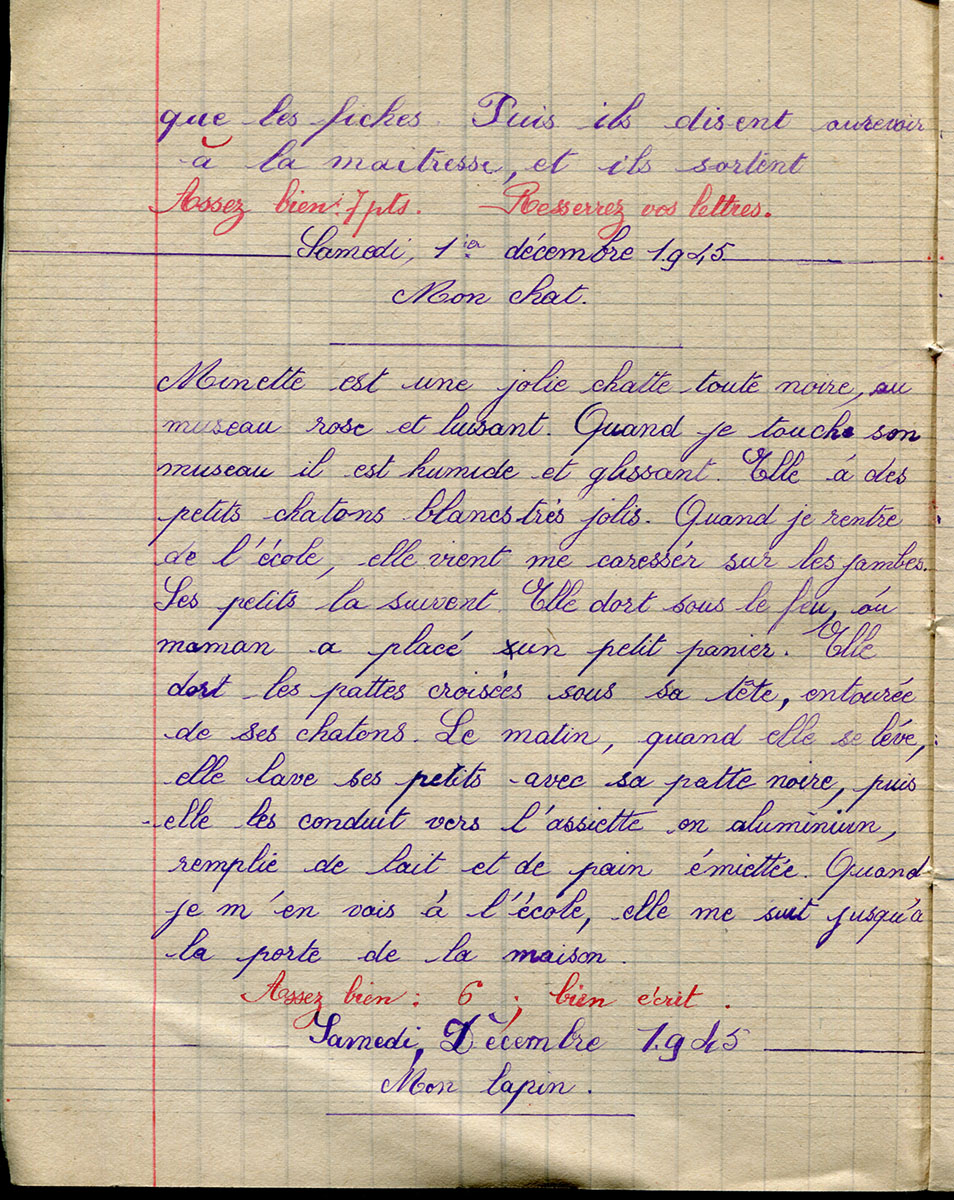 que les fiches. Puis ils disent aurevoir
à la maitresse, et ils sortent
Assez bien : 7 pts. Resserrez vos lettres.
Samedi, 1ier décembre 1945
Mon chat.
Minette est une jolie chatte toute noire, au
museau rose et luisant. Quand je touche son
museau il est humide et glissant. Elle à des
petits chatons blancs très jolis. Quand je rentre
de l'école, elle vient me caressér sur les jambes.
Ses petits la suivent. Elle dort sous le feu, óu
maman a placé un petit panier. Elle
dort les pattes croisées sous sa tête, entourée
de ses chatons. Le matin, quand elle se léve,
elle lave ses petits avec sa patte noire, puis
elle les conduit vers l'assiette en aluminium,
remplie de lait et de pain émiettée. Quand
je m'en vais à l'école, elle me suit jusqu'à
la porte de la maison.
Assez bien : 6 ; bien écrit.
Samedi, Décembre 1945
Mon lapin.